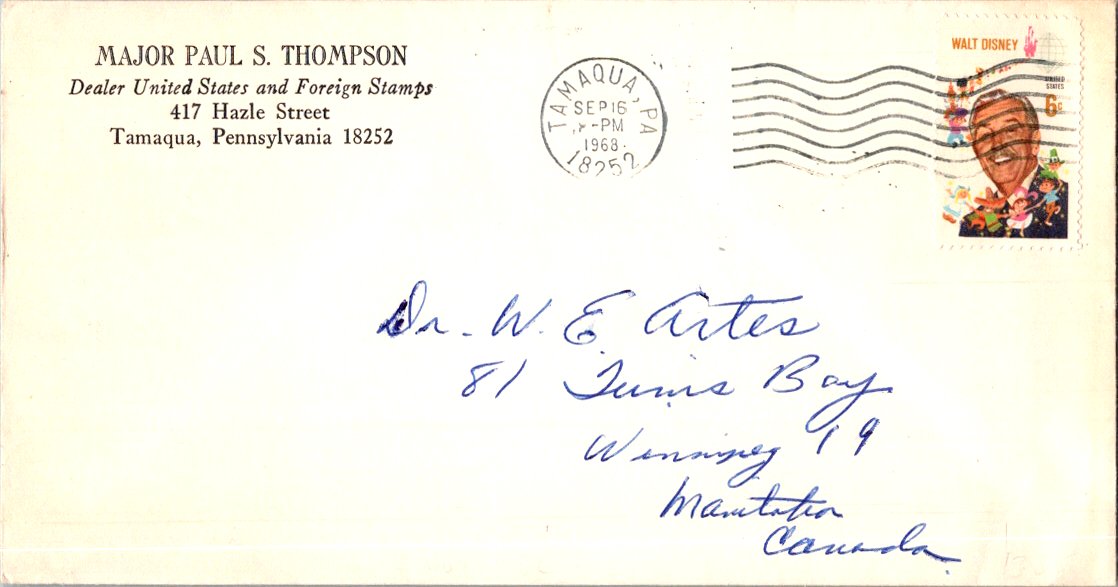 MAJOR PAUL S. THOMPSON
Dealer United States and Foreign Stamps
417 Hazle Street
Tamaqua, Pennsylvania 18252
TAMAQUA, PA
SEP 16
-PM
1968
18252
WALT DISNEY
UNITED
STATES
6c
Dr. W. E. Artes
81 Bay
Winnipeg 19
Manitoba
Canada